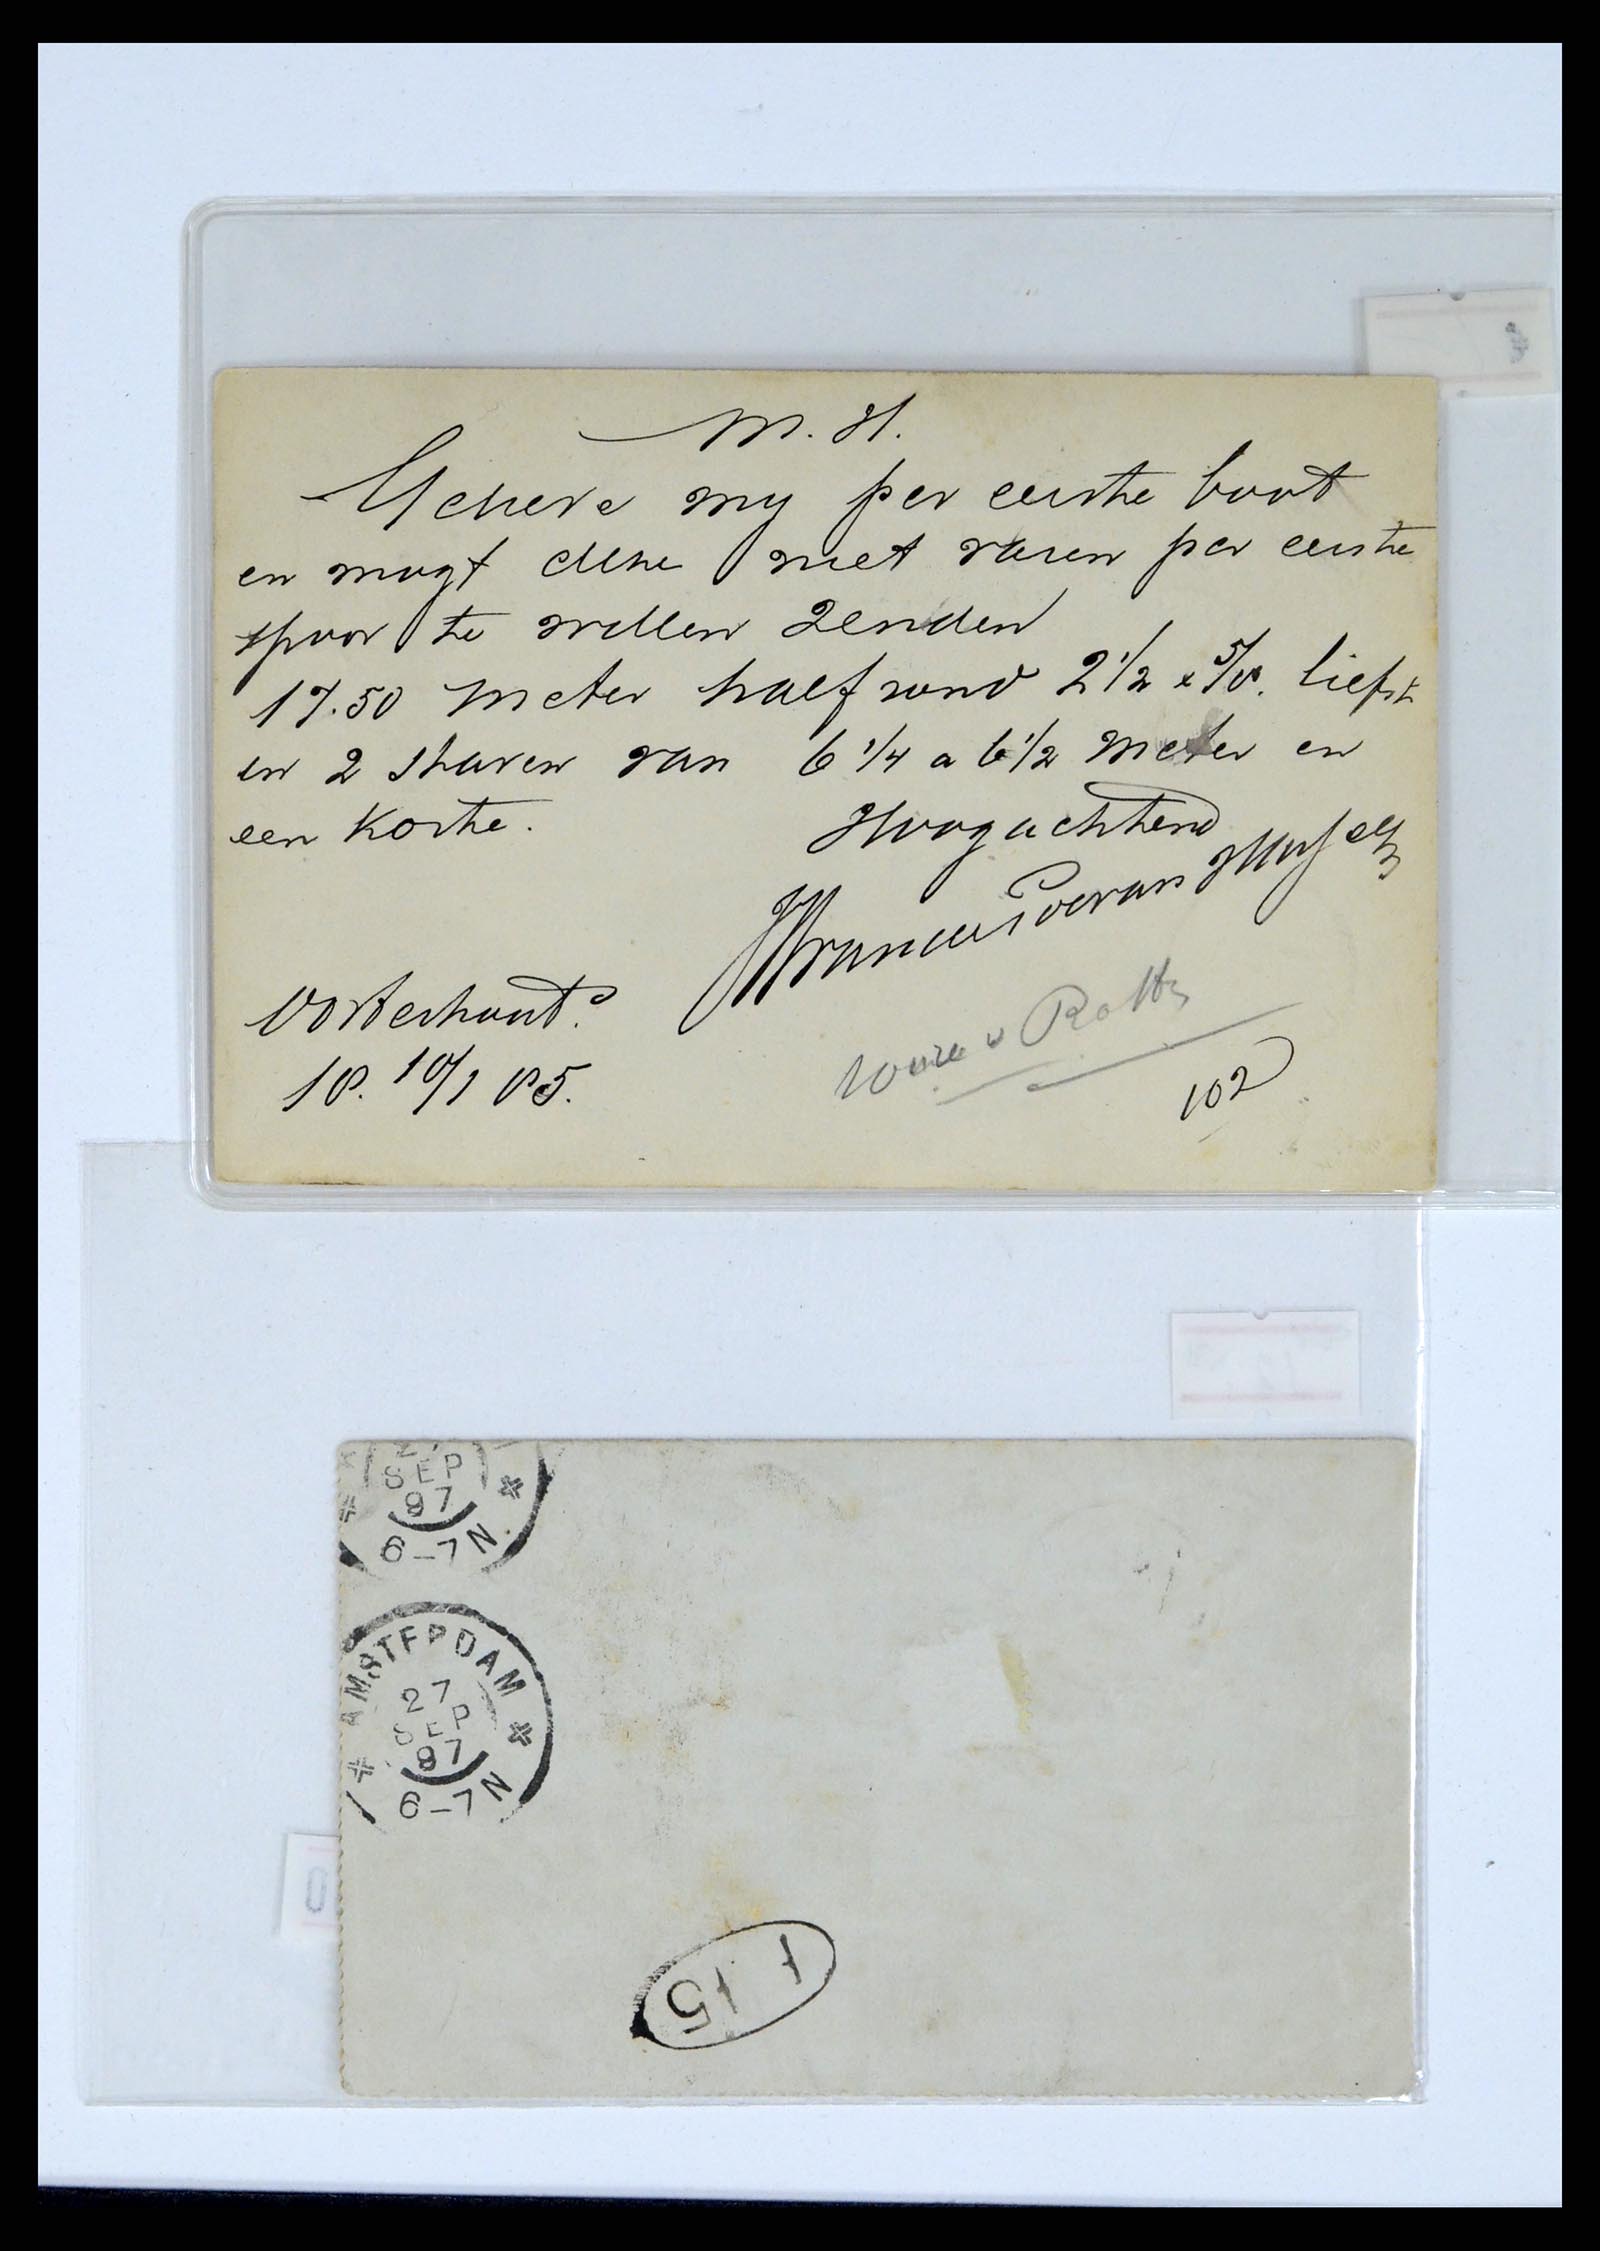 M. H.
Gelieve my per eerste boot
en mogt deze niet varen per eerste
spoor te willen zenden
17.50 Meter half rond 2 1/2 x 5/8. liefst
in 2 staven van 6 1/4 a 6 1/2 Meter en
een Korte.
Hoogachtend
Oosterhout
18. 10/1 85.
102
SEP
97
6-7N
AMSTERDAM
27
SEP
97
6-7N
15
0